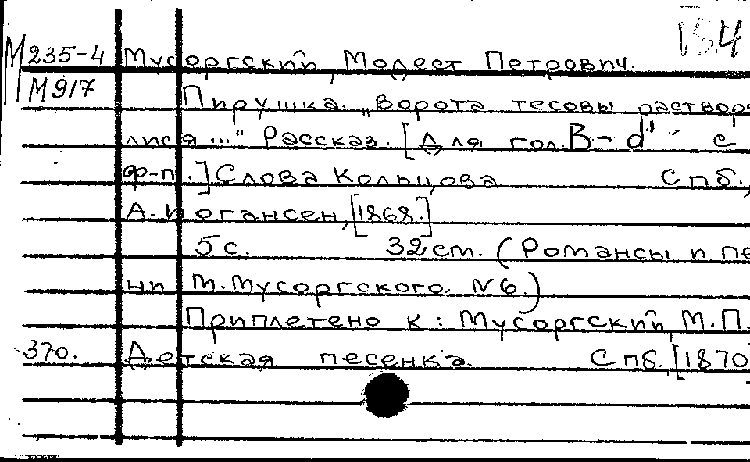 154
М 235-4 Мусоргский, Модест Петрович.
М917
Пирушка. „Ворота тесовы раствори
лися ..." Рассказ. [Для гол. B – d' с
ф-п.] Слова Кольцова Спб.,
А. Иогансен, [1868.]
5 с. 32 см. (Романсы и пе
ни М. Мусоргского. № 6.)
Приплетено к: Мусоргский, М.П.
370. Детская песенка. Спб., [1870